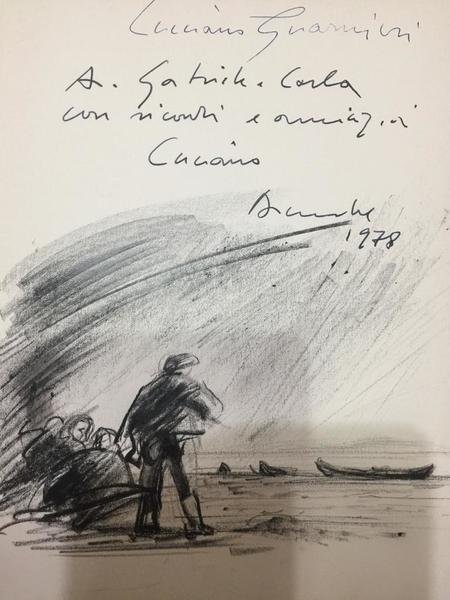 Luciano Guarnieri
A. Gabriele e Carla
con ricordi e amicizia
Luciano
Dicembre
1978